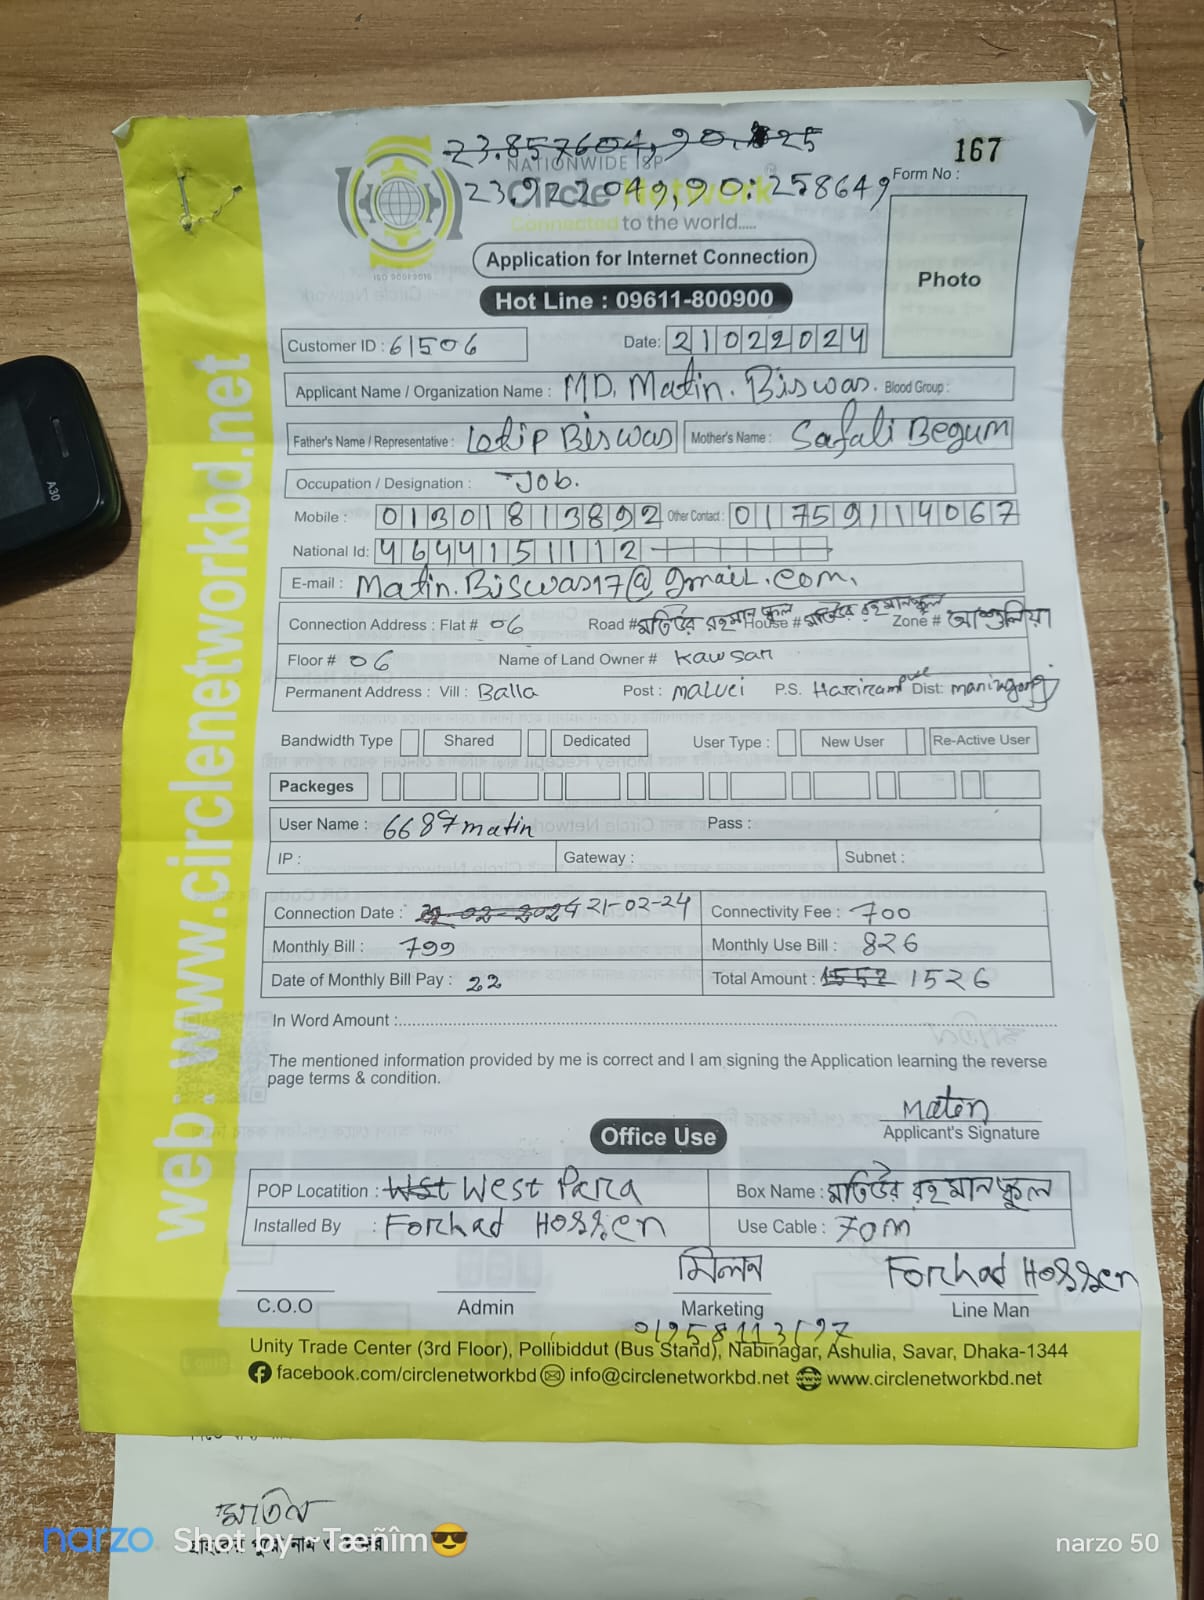 23.857604,90.
25
167
NATIONWIDE ISP
Form No :
Circle Network
23.922049,90.258649
Connected to the world.....
ISO 9001:9015
Application for Internet Connection
Photo
Hot Line : 09611-800900
Customer ID : 61506
Date: 21022024
Applicant Name / Organization Name : MD. Matin. Biswas. Blood Group :
Father's Name / Representative : Lotip Biswas Mother's Name : Safali Begum
Occupation / Designation : Job.
Mobile : 01301813892 Other Contact : 01759114067
National Id: 4644151112
E-mail : Matin.Biswas17@gmail.com.
Connection Address : Flat # 06 Road # মতিউর রহমান স্কুল House # মতিউর রহমান স্কুল Zone # আশুলিয়া
Floor # 06 Name of Land Owner # Kawsar
Permanent Address : Vill : Balla Post : malući P.S. Harirampur Dist: maningonj
Bandwidth Type Shared Dedicated User Type : New User Re-Active User
Packeges
User Name : 6687matin Pass :
IP : Gateway : Subnet :
Connection Date : 22-02-2024 21-02-24 Connectivity Fee : 700
Monthly Bill : 799 Monthly Use Bill : 826
Date of Monthly Bill Pay : 22 Total Amount : 1552 1526
In Word Amount :
The mentioned information provided by me is correct and I am signing the Application learning the reverse
page terms & condition.
Maten
Applicant's Signature
Office Use
POP Locatition : Wst West Para Box Name : মতিউর রহমান স্কুল
Installed By : Forhad Hossen Use Cable : 70m
মিলন Forhad Hossen
C.O.O Admin Marketing Line Man
Unity Trade Center (3rd Floor), Pollibiddut (Bus Stand), Nabinagar, Ashulia, Savar, Dhaka-1344
facebook.com/circlenetworkbd info@circlenetworkbd.net www.circlenetworkbd.net
web: www.circlenetworkbd.net
A30
মতিন
narzo Shot by ~Tæñîm😎
narzo 50